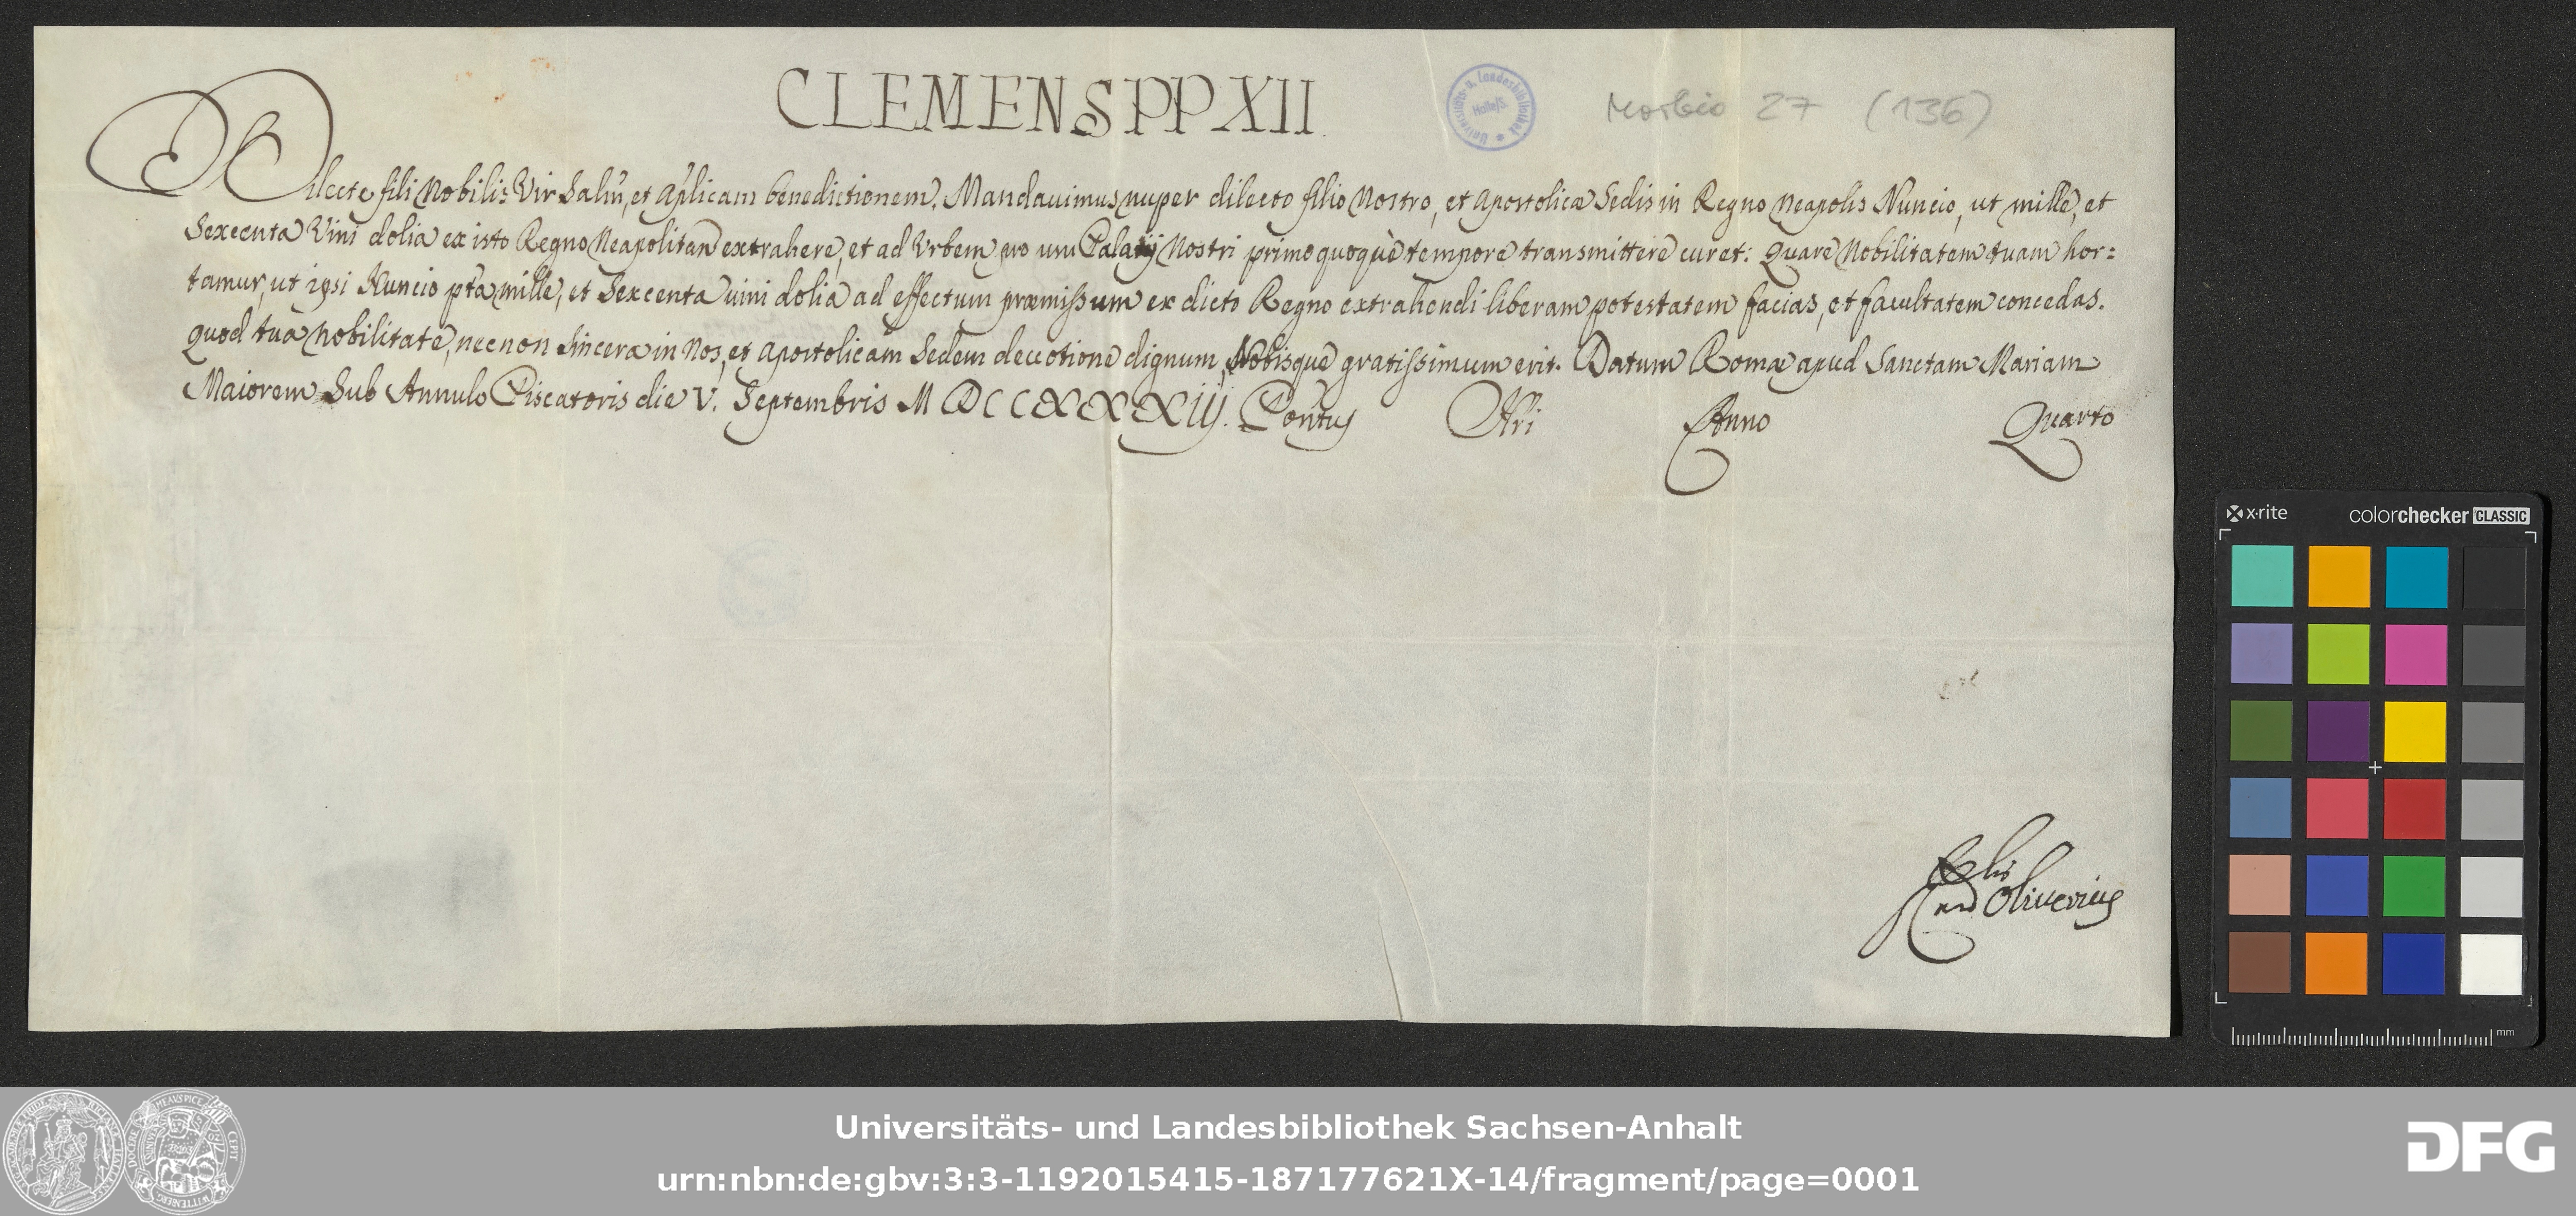 CLEMENS PP XII.
Universitäts- u. Landesbibliothek Halle/S.
Morbio 27 (136)
Dilecte fili Nobilis Vir Salm̃, et Apl̃icam benedictionem. Mandauimus nuper dilecto filio Nostro, et Apostolicæ Sedis in Regno Neapolis Nuncio, ut mille, et
Sexcenta Vini dolia ex isto Regno Neapolitan extrahere, et ad Urbem pro usu Palatij Nostri primo quoquè tempore transmittere curet: Quare Nobilitatem tuam hor=
tamur, ut ipsi Nuncio pt̃a mille, et Sexcenta uini dolia ad effectum præmissum ex dicto Regno extrahendi liberam potestatem facias, et facultatem concedas.
Quod tua Nobilitate, necnon sincera in Nos, et Apostolicam Sedem deuotione dignum, Nobisque gratissimum erit. Datum Romæ apud Sanctam Mariam
Maiorem Sub Annulo Piscatoris die V. Septembris MDCCXXXIIJ. Pontus Nri Anno Quarto
Card Oliuerius
x·rite colorchecker CLASSIC
mm
Universitäts- und Landesbibliothek Sachsen-Anhalt
urn:nbn:de:gbv:3:3-1192015415-187177621X-14/fragment/page=0001
DFG